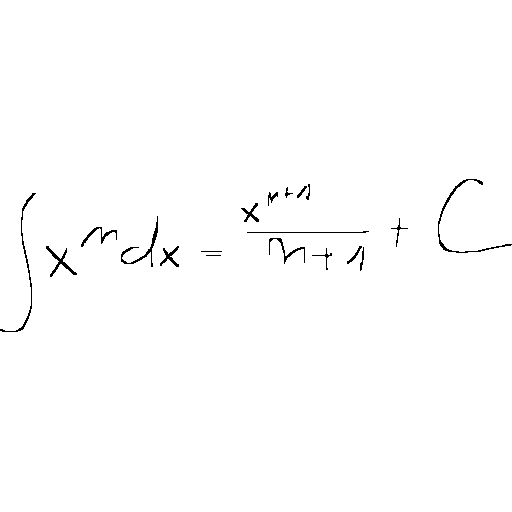 ∫xⁿdx = xⁿ⁺¹/(n+1) + C